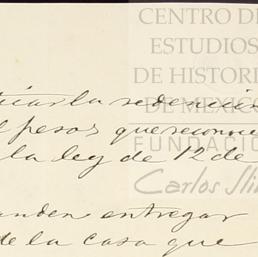 CENTRO DE
ESTUDIOS
DE HISTORI
DE MEXICO
FUNDACIÓ
Carlos Sli
la redención
pesos que reconoce
la ley de 12 de
anden entregar
de la casa que